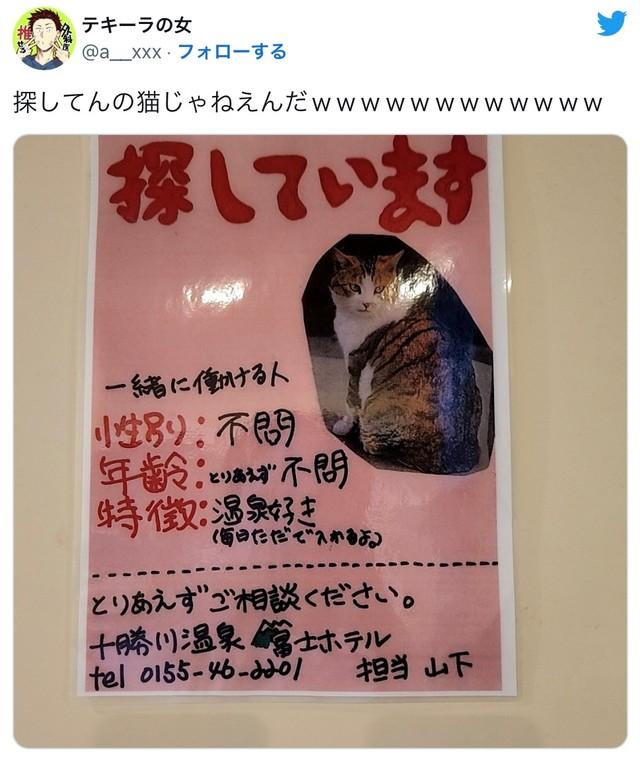 テキーラの女
@a__xxx · フォローする
探してんの猫じゃねえんだｗｗｗｗｗｗｗｗｗｗｗｗ
探しています
一緒に働ける人
性別：不問
年齢：とりあえず不問
特徴：温泉好き
（毎日ただで入れるよ。）
とりあえずご相談ください。
十勝川温泉 富士ホテル
tel 0155-46-2201 担当 山下